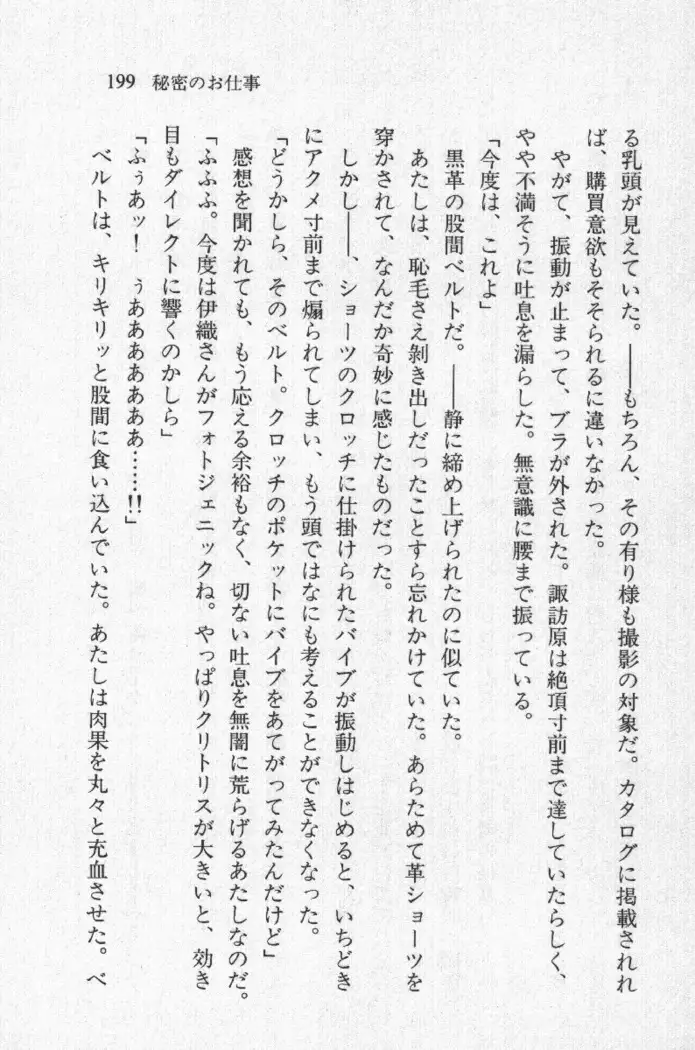 199 秘密のお仕事
る乳頭が見えていた。――もちろん、その有り様も撮影の対象だ。カタログに掲載されれ
ば、購買意欲もそそられるに違いなかった。
やがて、振動が止まって、ブラが外された。諏訪原は絶頂寸前まで達していたらしく、
やや不満そうに吐息を漏らした。無意識に腰まで振っている。
「今度は、これよ」
黒革の股間ベルトだ。――静に締め上げられたのに似ていた。
あたしは、恥毛さえ剥き出しだったことすら忘れかけていた。あらためて革ショーツを
穿かされて、なんだか奇妙に感じたものだった。
しかし――、ショーツのクロッチに仕掛けられたバイブが振動しはじめると、いちどき
にアクメ寸前まで煽られてしまい、もう頭ではなにも考えることができなくなった。
「どうかしら、そのベルト。クロッチのポケットにバイブをあてがってみたんだけど」
感想を聞かれても、もう応える余裕もなく、切ない吐息を無闇に荒らげるあたしなのだ。
「ふふふ。今度は伊織さんがフォトジェニックね。やっぱりクリトリスが大きいと、効き
目もダイレクトに響くのかしら」
「ふぅあッ！　ぅああああああ……!!」
ベルトは、キリキリッと股間に食い込んでいた。あたしは肉果を丸々と充血させた。ベ